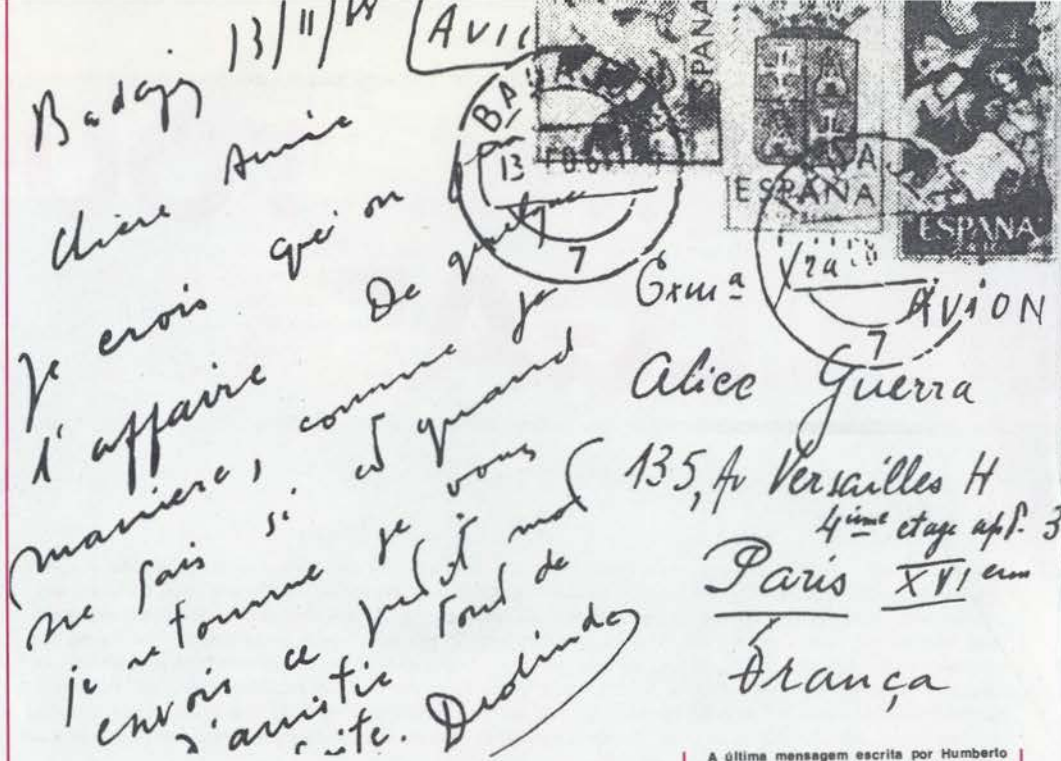 Badajoz 13/II/65
AVIO
Chère Amie
Je crois que on
l'affaire De quelque
maniere, comme je
ne sais si et quand
je retourne je vous
envois ce petit mot
d'amitié tout de
suite. Deolinda
BADA
13 FEB
7
ESPAÑA
ESPAÑA
ESPAÑA
7
AVION
Exmª
Alice Guerra
135, Av Versailles H
4ième etage apt. 3
Paris XVI em
França
A última mensagem escrita por Humberto